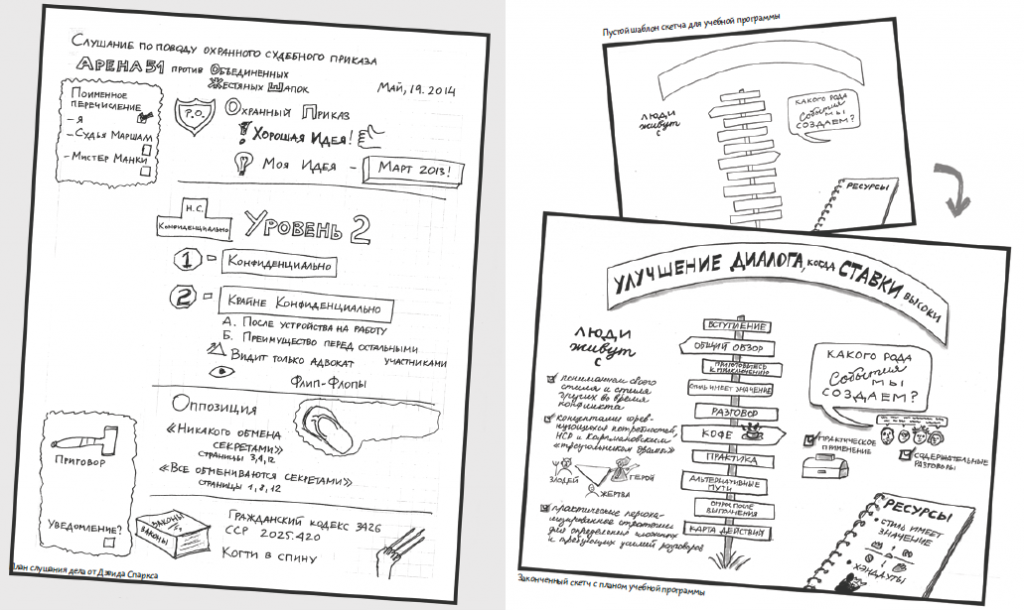 Слушание по поводу охранного судебного приказа
Арена 51 против Объединенных
Жестяных Шапок
Май, 19. 2014
Поименное
перечисление
- Я
- Судья Маршам
- Мистер Манки
P.O.
Охранный Приказ
! Хорошая Идея!
Моя Идея - Март 2013!
Н.С.
Конфиденциально
Уровень 2
1 - Конфиденциально
2 - Крайне Конфиденциально
А. После устройства на работу
Б. Преимущество перед остальными
участниками
Видит только адвокат
Флип-Флопы
Оппозиция
«Никакого обмена
секретами»
страницы 3,4,12
«Все обмениваются секретами»
страницы 1, 8, 12
Приговор
Уведомление?
Законы
Законы
Гражданский кодекс 3426
ССР 2025.420
Когти в спину
План слушания дела от Дэвида Спаркса
Пустой шаблон скетча для учебной программы
Люди
живут
с
Какого рода
События
мы
создаем?
Ресурсы
Улучшение диалога, когда ставки высоки
Вступление
Общий обзор
Приготовьтесь
к приключению
Стиль имеет значение
Разговор
Кофе
Практика
Альтернативные
пути
Опрос после
выполнения
Карта действий
Люди
живут
с
пониманием своего
стиля и стиля
других во время
конфликта
концепциями
потребностей,
НСР и Карпмановским
«треугольником драмы»
Злодей
Герой
Жертва
практические
стратегии
для определения
и требующих усилий разговоров
Какого рода
События
мы
создаем?
Практическое
применение
Содержательные
разговоры
Ресурсы
• Стиль имеет
значение
• Хэндауты
Законченный скетч с планом учебной программы